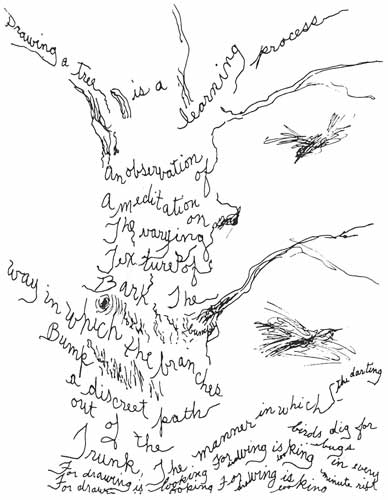 Drawing a tree is a learning process
An observation of
A meditation on
The varying
Texture of
Bark. The
way in which the branches
Bump
a discreet path
out of the
Trunk. The manner in which the darting
birds dig for bugs
in every
minute
For drawing is looking For looking is
For drawing is looking For looking is